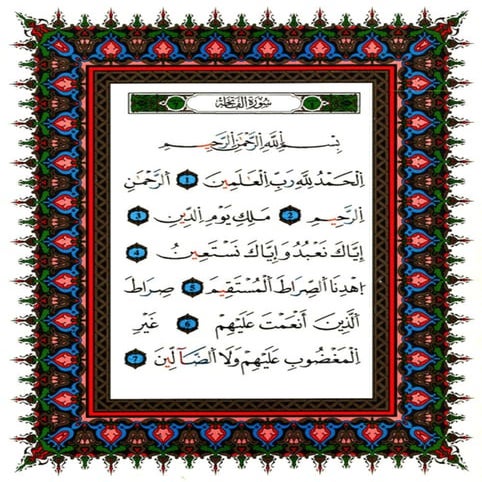 سُورَةُ الْفَاتِحَةِ
بِسْمِ اللَّهِ الرَّحْمَٰنِ الرَّحِيمِ
اِلْحَمْدُ لِلهِ رَبِّ اِلْعَٰلَمِينَ 1 اَلرَّحْمَٰنِ
اِلرَّحِيمِ 2 مَلِكِ يَوْمِ اِلدِّينِ 3
إِيَّاكَ نَعْبُدُ وَإِيَّاكَ نَسْتَعِينُ 4
اِهْدِنَا اَلصِّرَاطَ اَلْمُسْتَقِيمَ 5 صِرَاطَ
اَلَّذِينَ أَنْعَمْتَ عَلَيْهِمْ 6 غَيْرِ
اِلْمَغْضُوبِ عَلَيْهِمْ وَلَا اَلضَّآلِّينَ 7